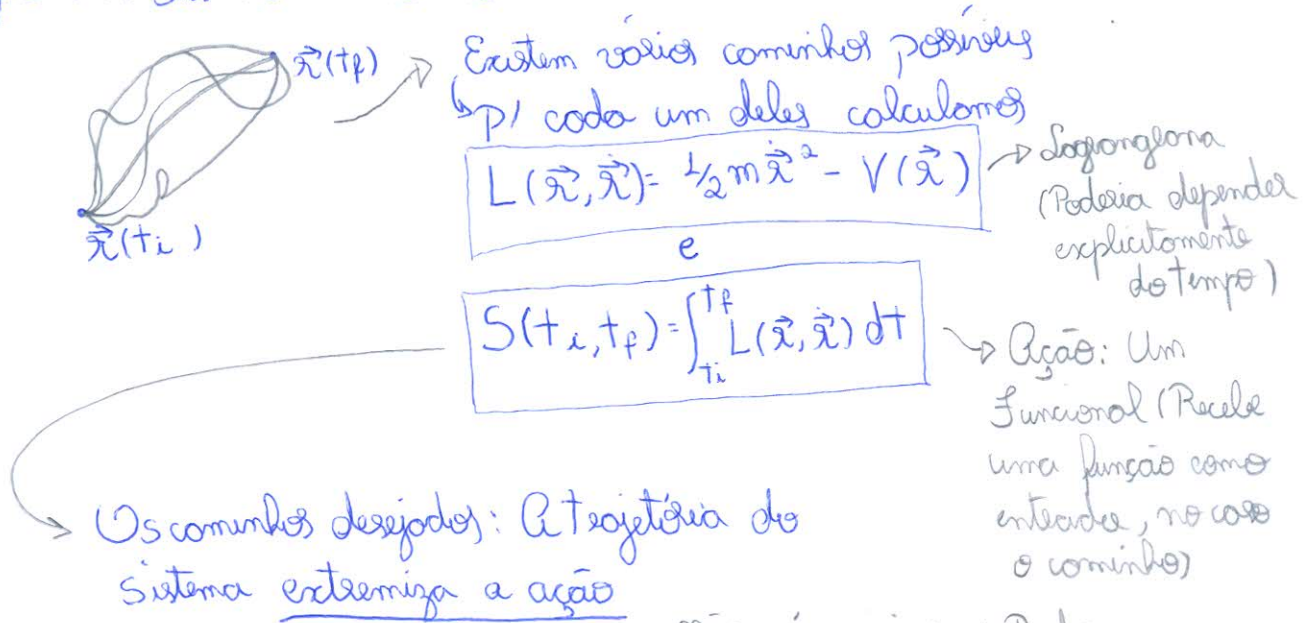 r⃗(tf)
Existem vários caminhos possíveis
p/ cada um deles calculamos
L(r⃗, ṙ⃗) = 1/2 m ṙ⃗² - V(r⃗)
Lagrangeana
(Poderia depender
explicitamente
do tempo)
r⃗(ti)
e
S(ti, tf) = ∫_{ti}^{tf} L(r⃗, ṙ⃗) dt
Ação: Um
Funcional (Recebe
uma função como
entrada, no caso
o caminho)
Os caminhos desejados: A trajetória do
sistema extremiza a ação